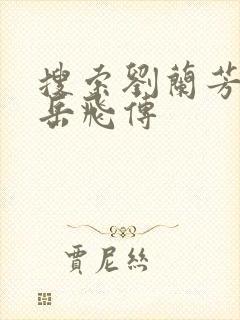 搜索劉蘭芳
岳飛傳
賈尼絲